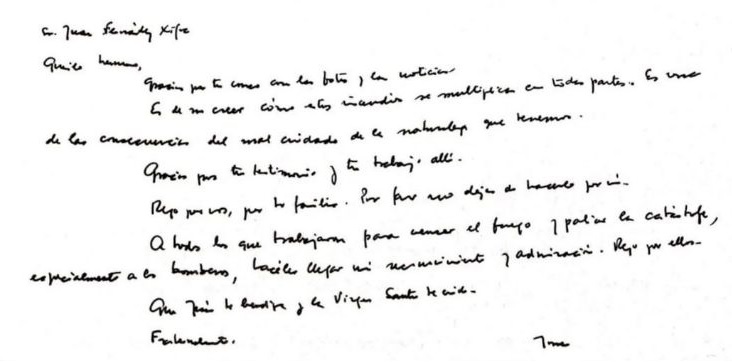 Sr. Juan Fernández Xifra
Querido hermano,
Gracias por tu correo con las fotos y las noticias.
Es de no creer cómo estos incendios se multiplican en todas partes. Es una
de las consecuencias del mal cuidado de la naturaleza que tenemos.
Gracias por tu testimonio y tu trabajo allí.
Rezo por vos, por tu familia. Por favor no dejes de hacerlo por mí.
A todos los que trabajaron para vencer el fuego y paliar la catástrofe,
especialmente a los bomberos, haceles llegar mi reconocimiento y admiración. Rezo por ellos.
Que Jesús te bendiga y la Virgen Santa te cuide.
Fraternalmente,